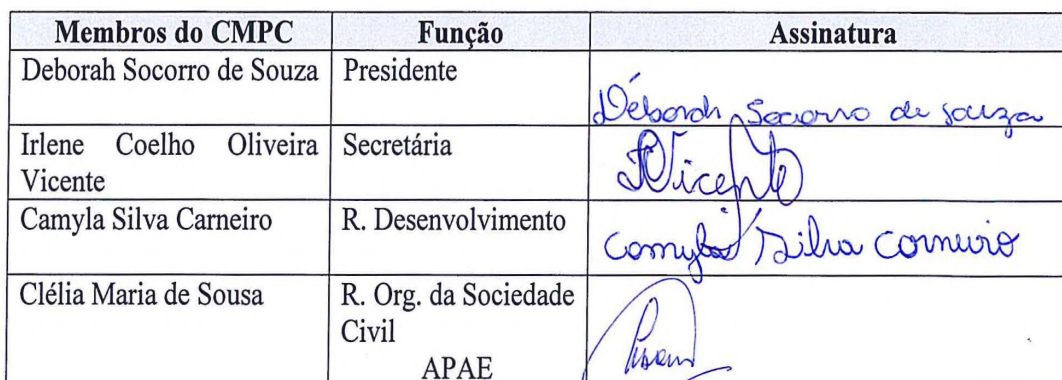 Membros do CMPC Função Assinatura
Deborah Socorro de Souza Presidente
Déborah Socorro de souza
Irlene Coelho Oliveira Secretária
Vicente
Vicente
Camyla Silva Carneiro R. Desenvolvimento
Camyla Silva Carneiro
Clélia Maria de Sousa R. Org. da Sociedade
Civil
APAE